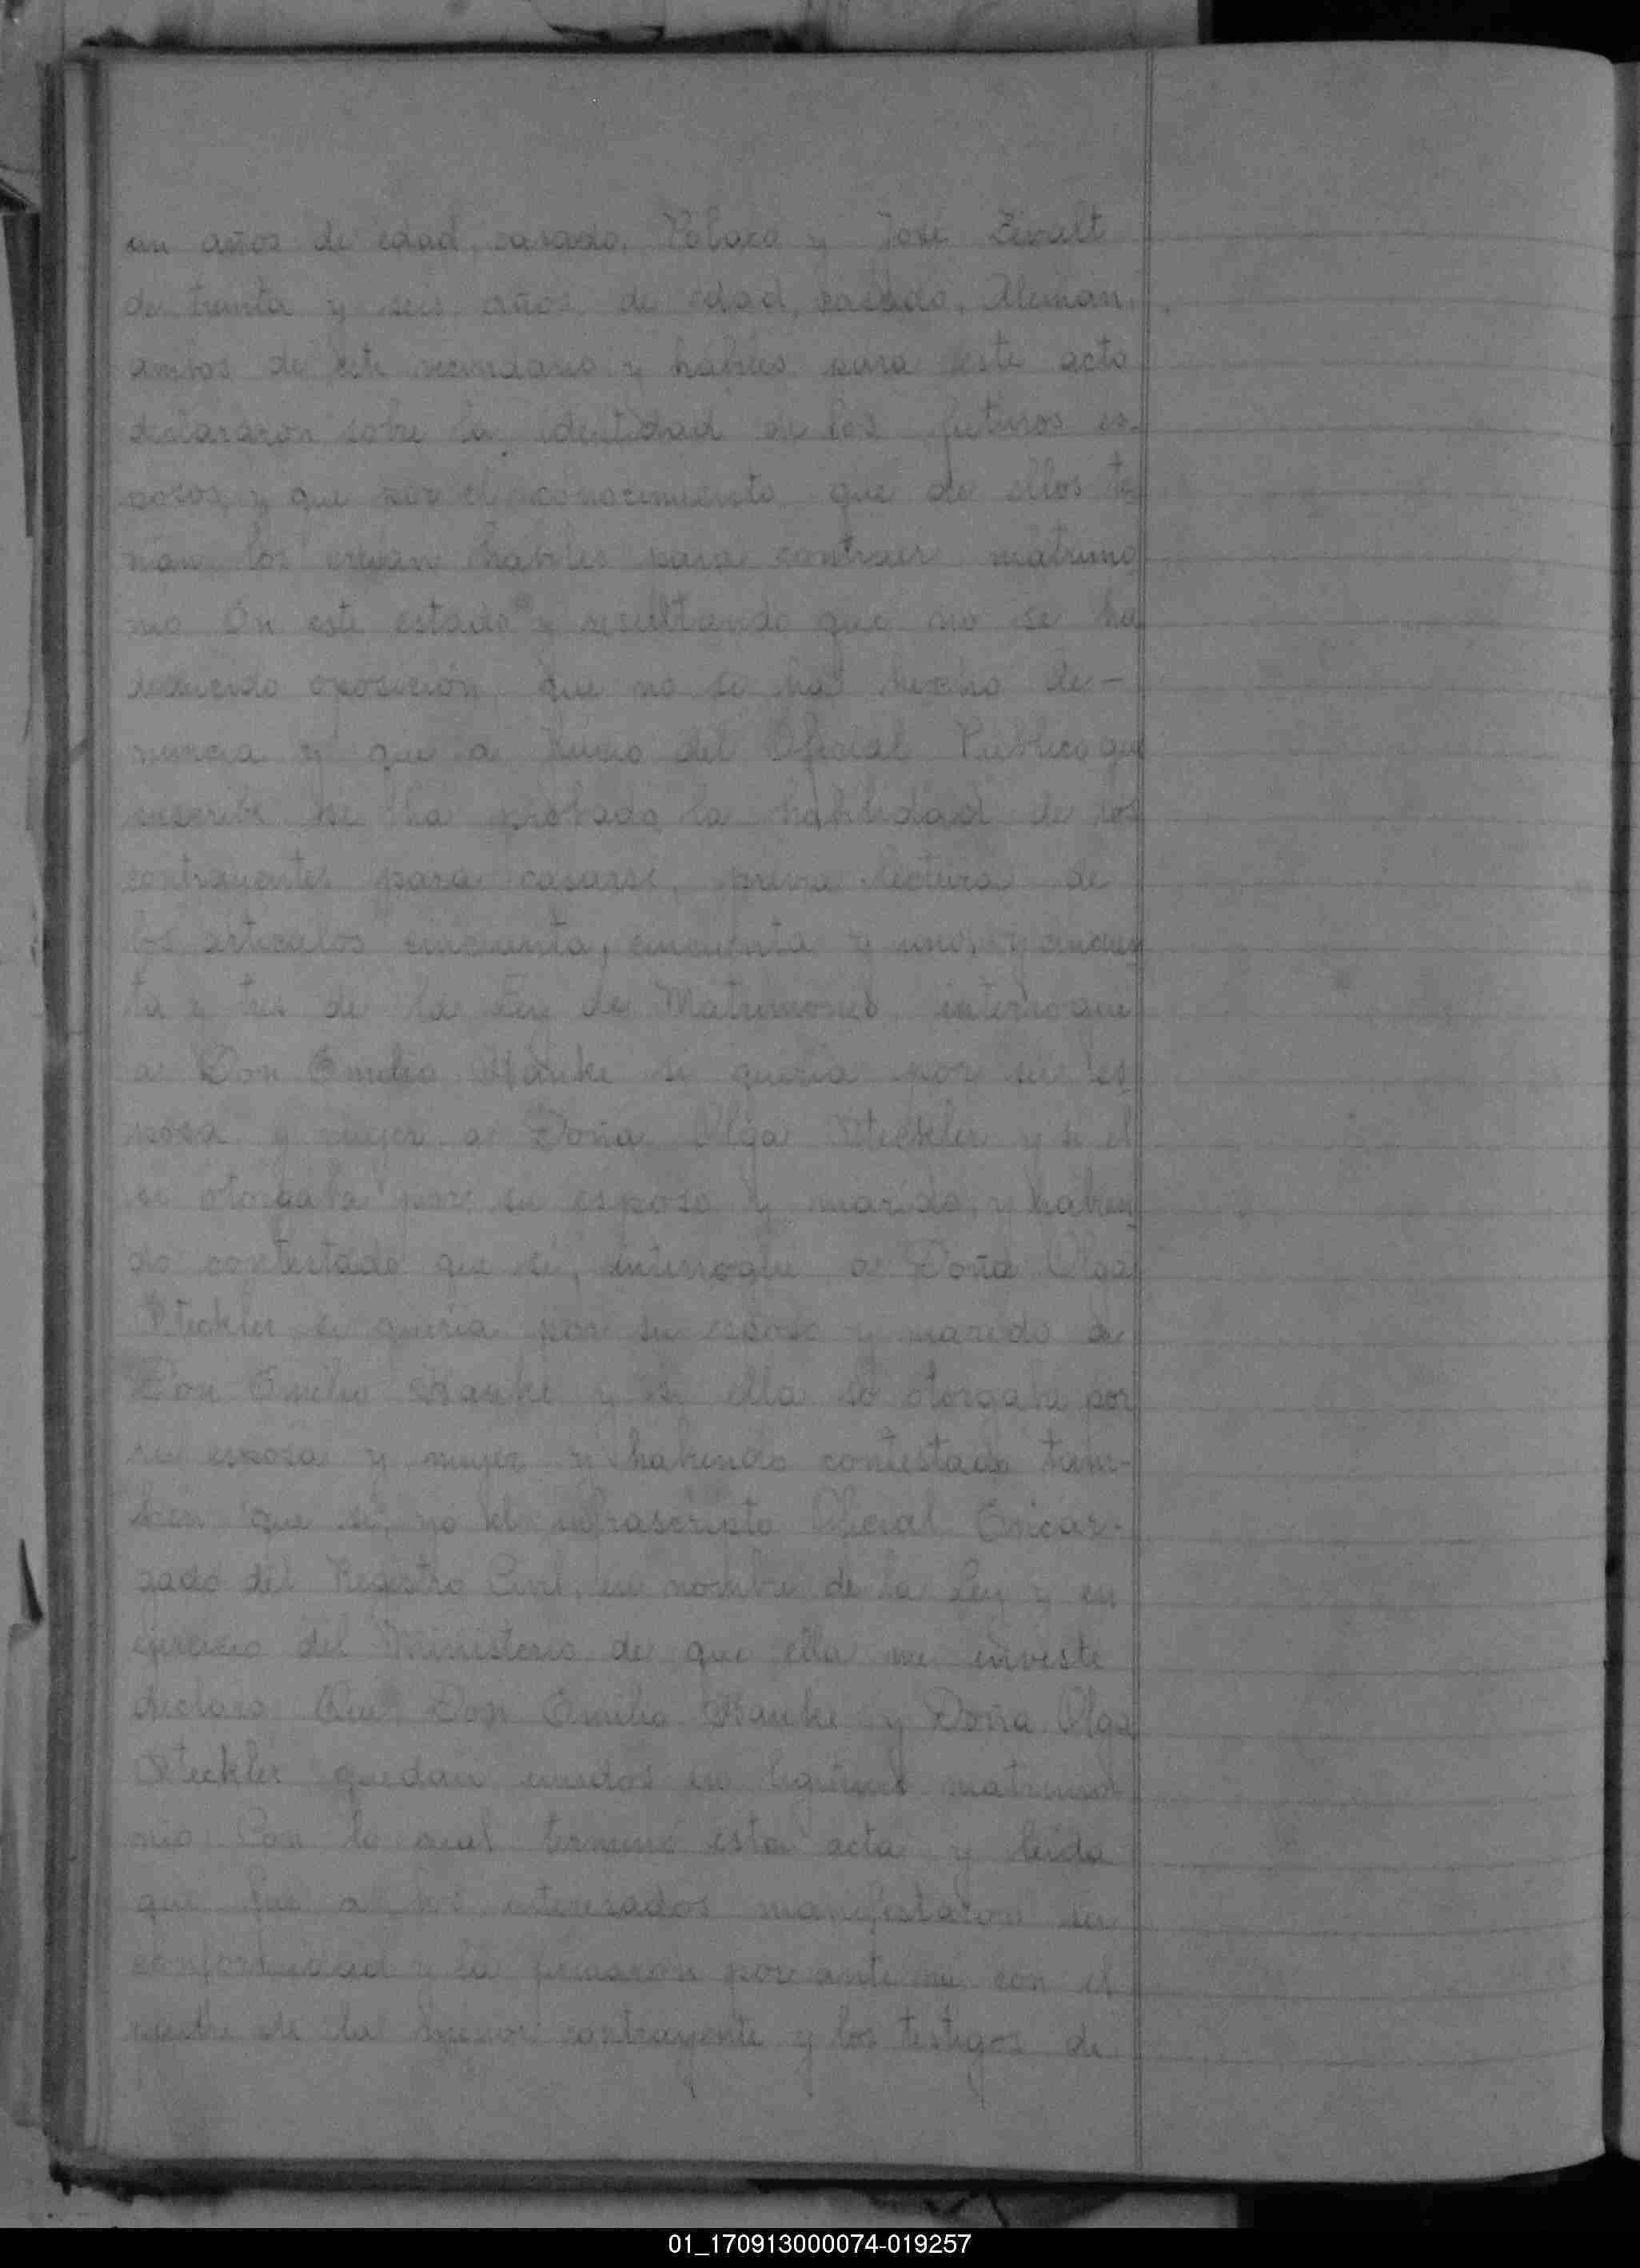 un años de edad, casado, Polaco y José Zivalt
de treinta y seis años de edad, casado, Alemán,
ambos de este vecindario y hábiles para este acto
declararon sobre la identidad de los futuros es-
posos y que por el conocimiento que de ellos te-
nían los creían hábiles para contraer matrimo
nio En este estado y resultando que no se ha
deducido oposición, que no se ha hecho de-
nuncia y que a juicio del Oficial Público que
suscribe se ha probado la habilidad de los
contrayentes para casarse, previa lectura de
los artículos cincuenta, cincuenta y uno, y cincuen
ta y tres de la Ley de Matrimonio, interrogué
a Don Emilio Hanke si quería por su es
posa y mujer a Doña Olga Steckler y si el
se otorgaba por su esposo y marido y habien
do contestado que si, interrogué a Doña Olga
Steckler si quería por su esposo y marido a
Don Emilio Hanke y si ella se otorgaba por
su esposa y mujer y habiendo contestado tam-
bien que si, yo el infrascripto Oficial Encar-
gado del Registro Civil, en nombre de la Ley y en
ejercicio del Ministerio de que ella me inviste
declaro Que Don Emilio Hanke y Doña Olga
Steckler quedan unidos en legítimo matrimo
nio Con lo cual terminó esta acta y leída
que fue a los interesados manifestaron su
conformidad y la firmaron por ante mi con el
padre de la menor contrayente y los testigos de
01_170913000074-019257